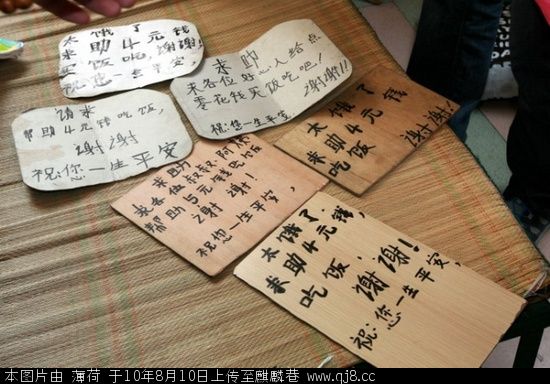 太饿了
求助4元钱,
买饭吃,谢谢!
祝您一生平安,
求助
求各位好心人给点
零花钱买饭吃吧!
谢谢!!
祝:您一生平安
请求
帮助4元钱吃饭,
谢谢
祝:您一生平安
求助
求各位叔叔阿姨
帮助5元钱吃饭
谢谢!
祝您一生平安,
太饿了
求助4元钱
吃饭 谢谢!
太饿了
求助4元钱,
吃饭,谢谢!
祝:您一生平安,
本图片由 薄荷 于10年8月10日上传至麒麟巷 www.qj8.cc